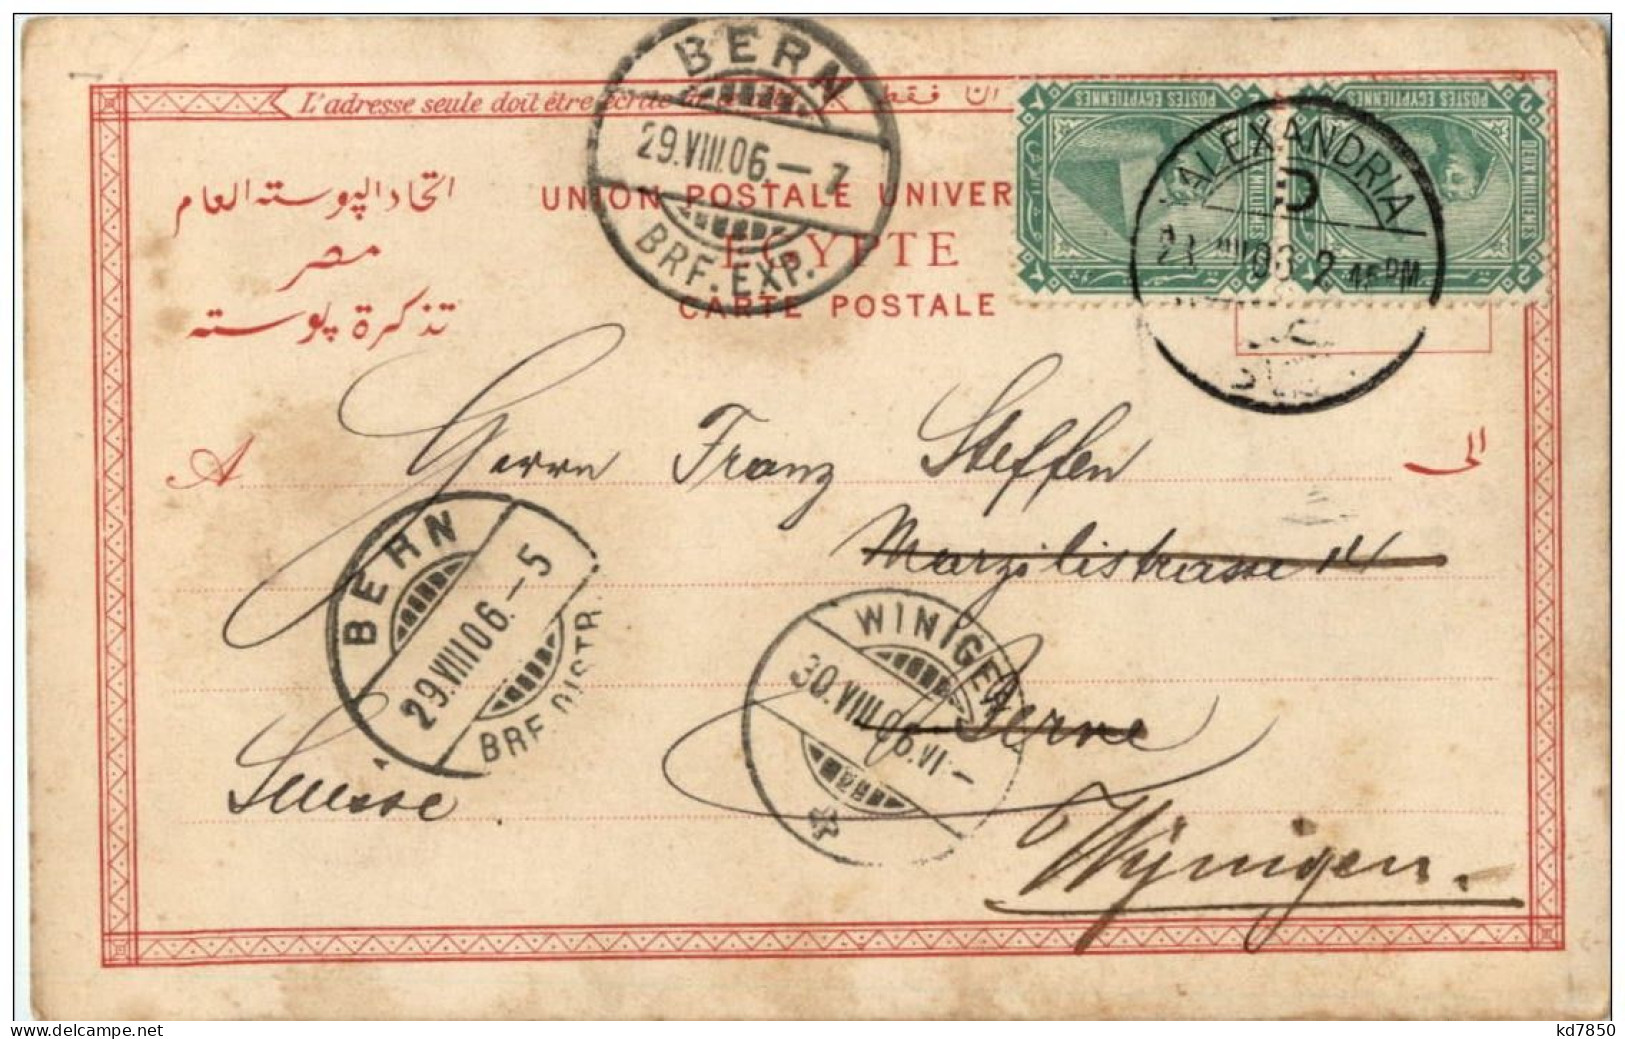 L'adresse seule doit être écrite
فقط
اتحاد البوسته العام
مصر
تذكرة بوسته
UNION POSTALE UNIVER
EGYPTE
CARTE POSTALE
POSTES EGYPTIENNES
2
DEUX MILLIEMES
2
POSTES EGYPTIENNES
DEUX MILLIEMES
2
ALEXANDRIA
D
VIII 06 2 45 PM
BERN
29.VIII.06.– 7
BRF. EXP.
A
الى
Herrn Franz Steffen
Marzilistrasse 14
Berne
Suisse
Wynigen.
BERN
29.VIII 06.–5
BRF. DISTR.
WINIGEN
30.VIII.06.VI–
delcampe.net
kd7850